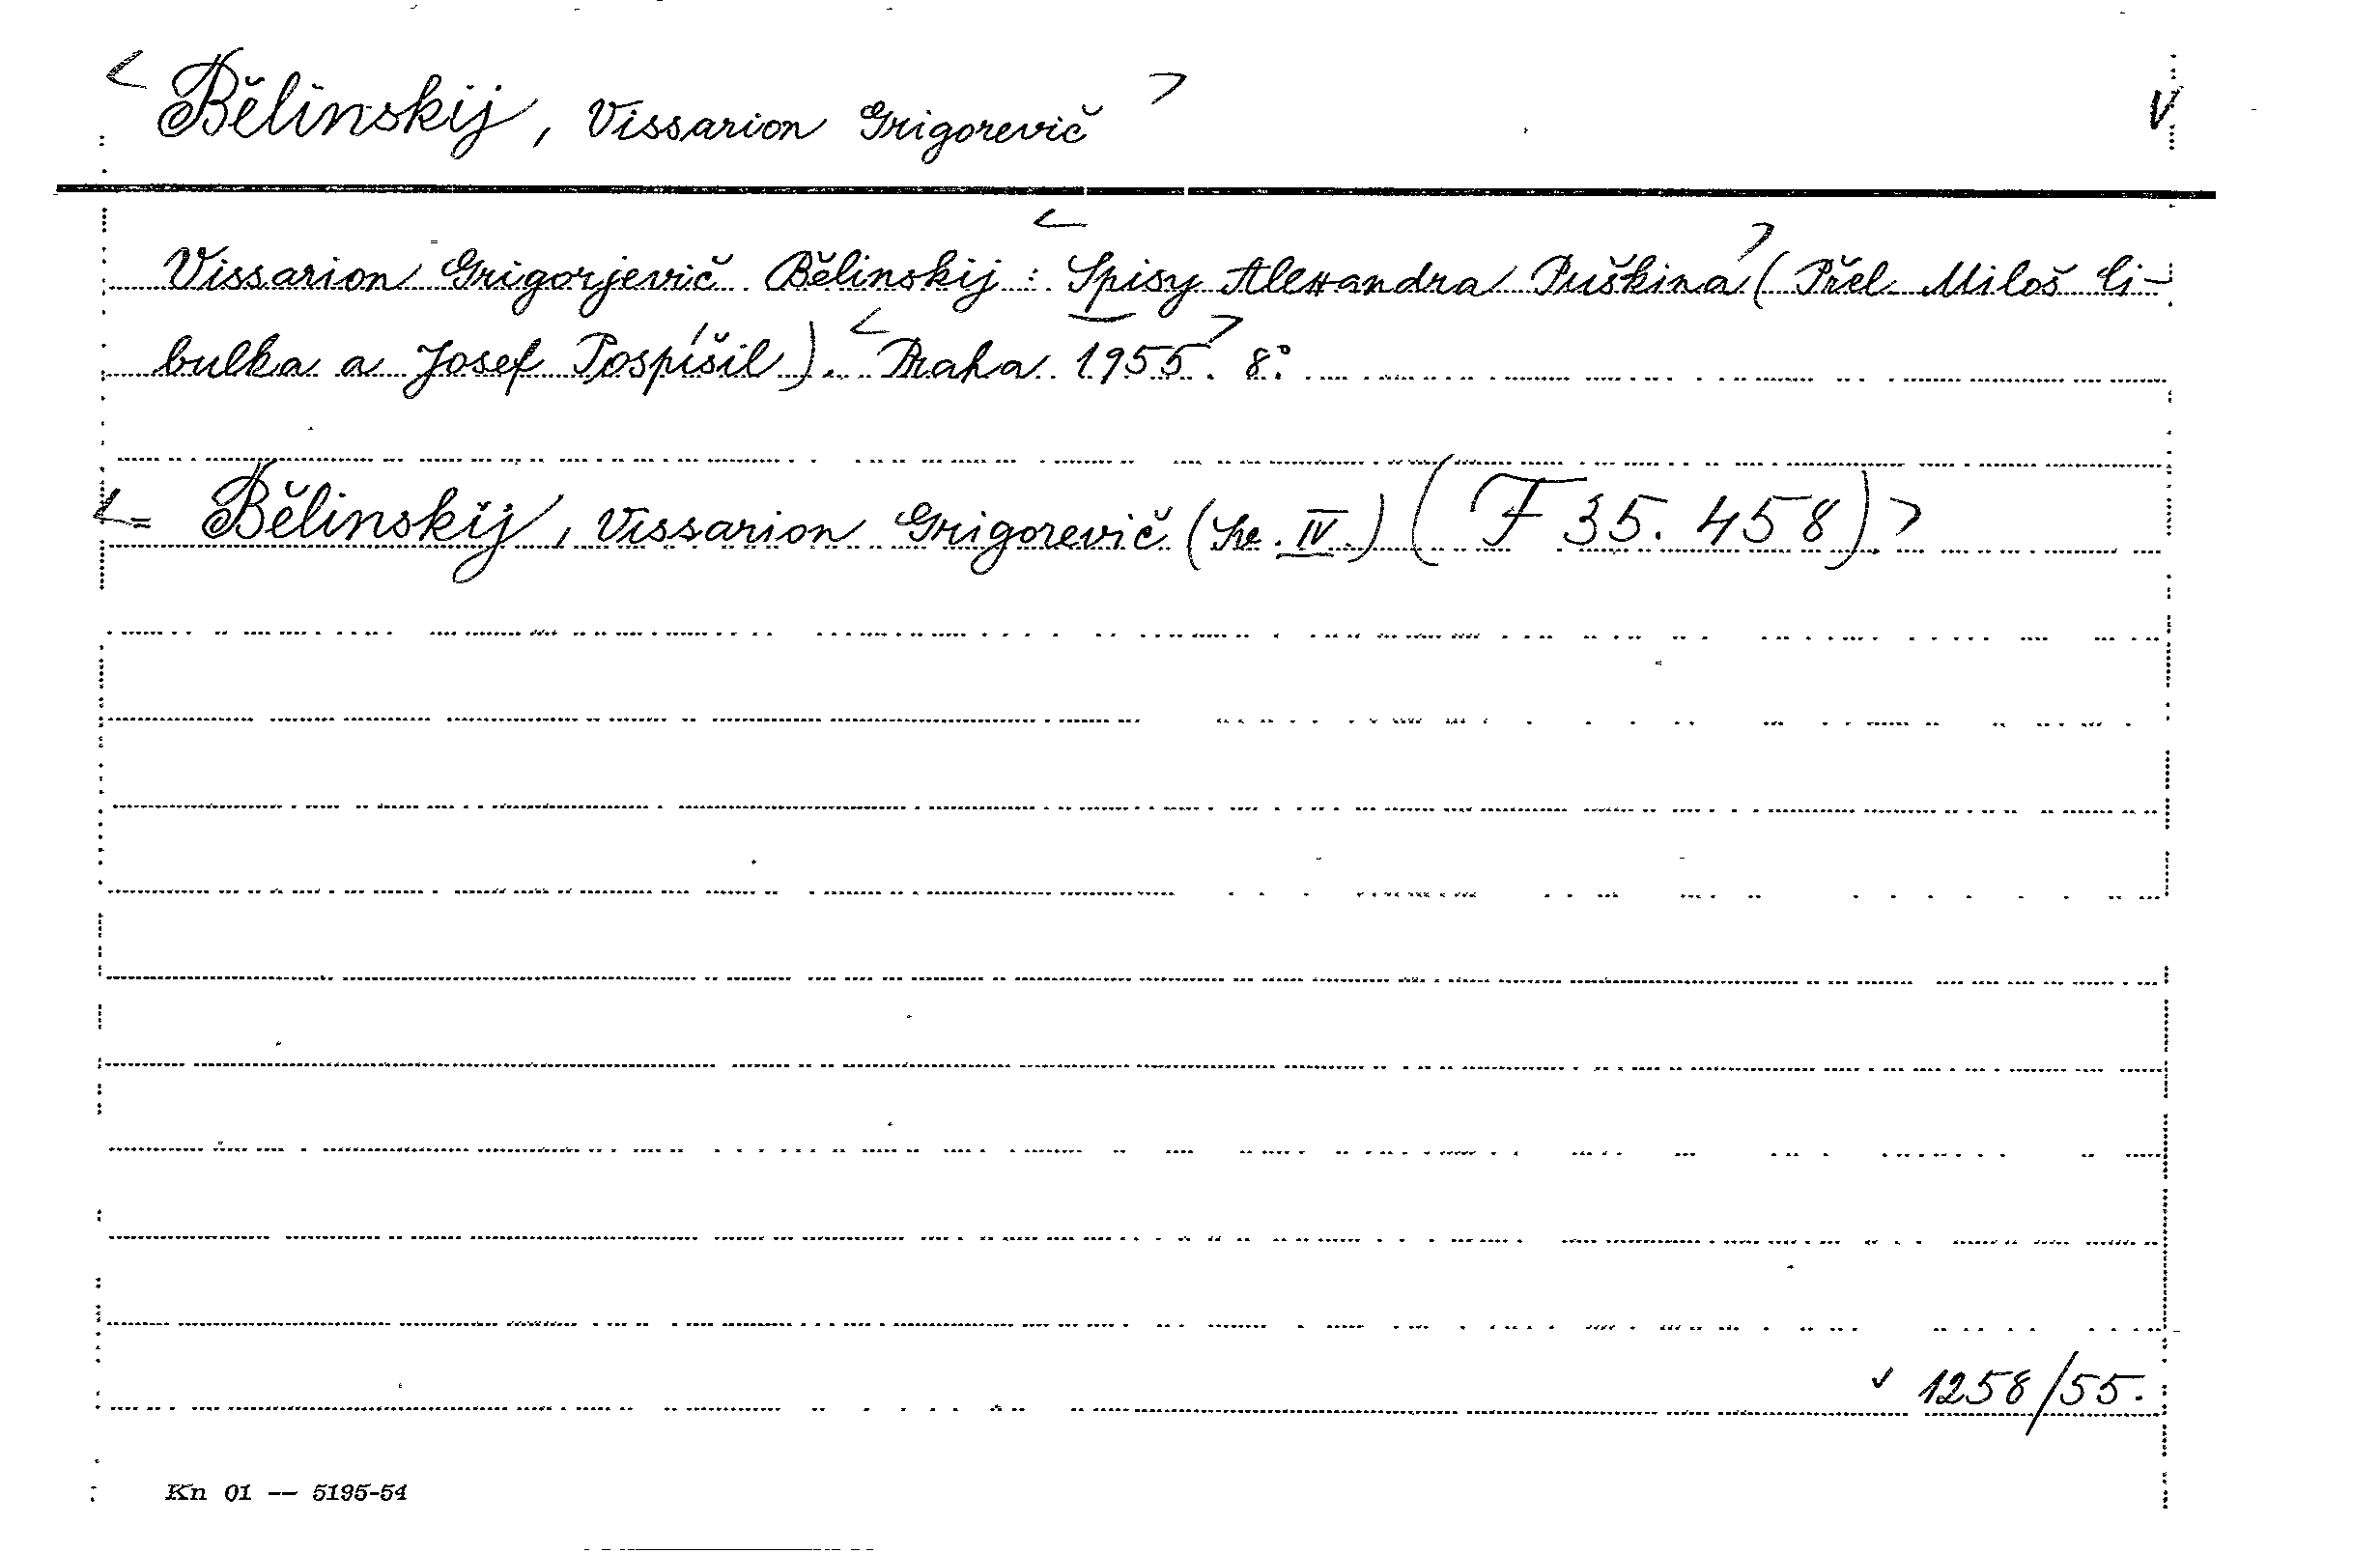 < Bělinskij, Vissarion Grigorevič > V
Vissarion Grigorjevič Bělinskij: <Spisy Alexandra Puškina> (Přel. Miloš Ci-
bulka a Josef Pospíšil). <Praha 1955>. 8°.
<= Bělinskij, Vissarion Grigorevič (Sv. IV.) (F 35.458).>
✓ 1258/55.
Kn 01 -- 5195-54